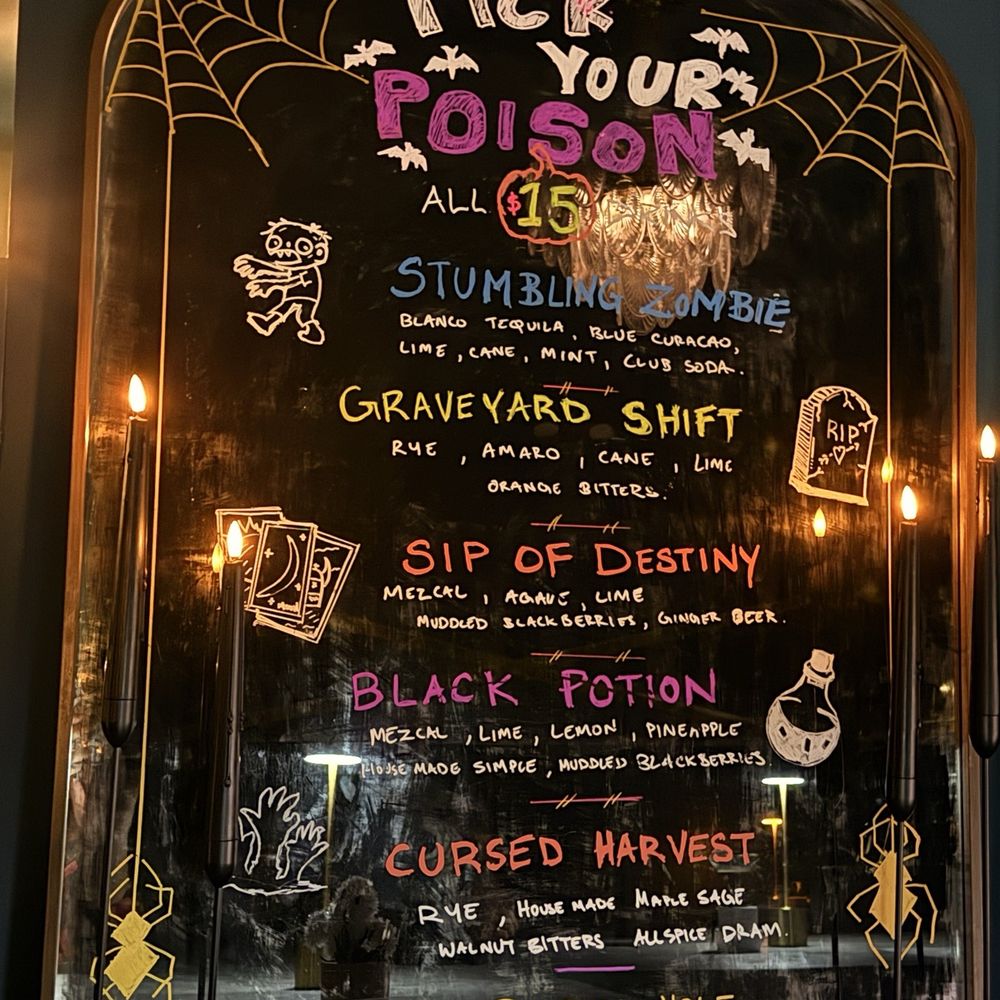 PICK
YOUR
POISON
ALL $15
STUMBLING ZOMBIE
BLANCO TEQUILA, BLUE CURACAO,
LIME, CANE, MINT, CLUB SODA.
GRAVEYARD SHIFT
RYE, AMARO, CANE, LIME
ORANGE BITTERS.
RIP
SIP OF DESTINY
MEZCAL, AGAVE, LIME
MUDDLED BLACKBERRIES, GINGER BEER.
BLACK POTION
MEZCAL, LIME, LEMON, PINEAPPLE
HOUSE MADE SIMPLE, MUDDLED BLACKBERRIES
CURSED HARVEST
RYE, HOUSE MADE MAPLE SAGE
WALNUT BITTERS ALLSPICE DRAM.